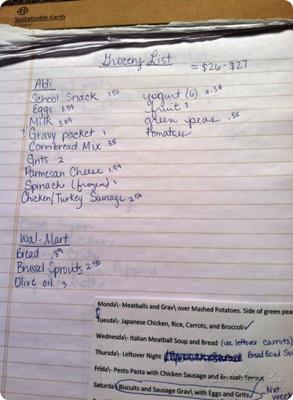 Sustainable Earth
Grocery List
≈ $26 - $27
Aldi
School Snack 1.50
Eggs 1.59
Milk 3.09
? Gravy packet 1
Cornbread Mix .35
Grits 2
Parmesan Cheese 1.99
Spinach (frozen) 1
Chicken/Turkey Sausage 2.50
yogurt (6) 2.34
fruit 3
green peas .55
tomatoes
Wal-Mart
Bread .89
Brussel Sprouts 2.50
Olive oil 3
Monda\- Meatballs and Grav\ over Mashed Potatoes. Side of green pea
Tuesda\- Japanese Chicken, Rice, Carrots, and Broccoli ✓
Wednesda\- Italian Meatball Soup and Bread (use leftover carrots)
Thursda\- Leftover Night Bread Bowl Sou
Frida\- Pesto Pasta with Chicken Sausage and Brussel Sprout
Saturda\ Biscuits and Sausage Grav\ with Eggs and Grits
Nxt. week